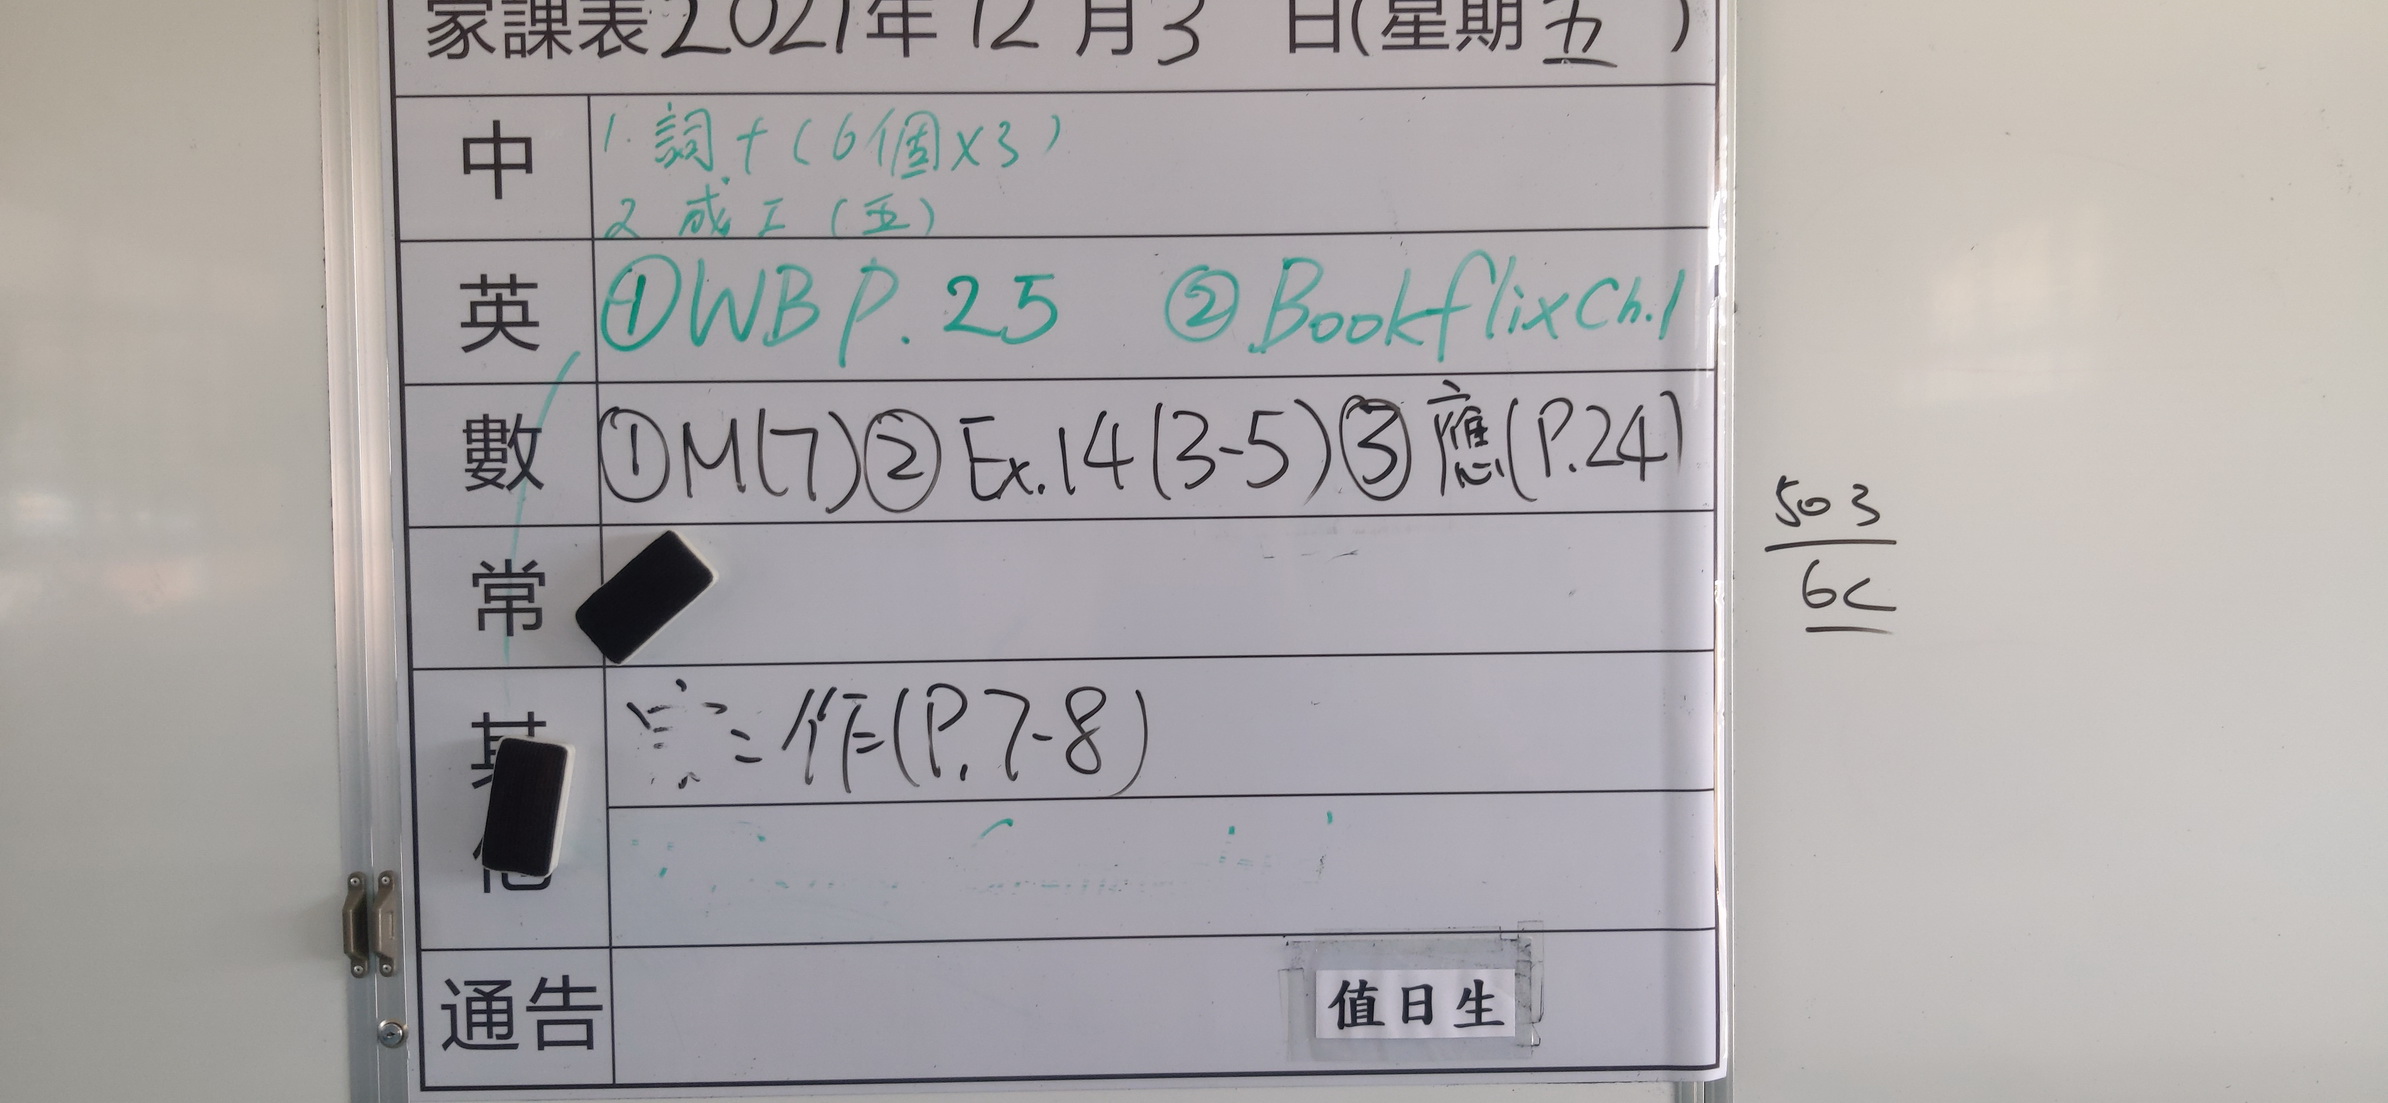 家課表2021年12月3日(星期五)
中
1. 詞十(6個×3)
2 成工(五)
英
①WB P.25 ②Bookflix Ch.1
數
①M(7)②Ex.14(3-5)③應(P.24)
常
其他
作(P.7-8)
通告
值日生
503
6C